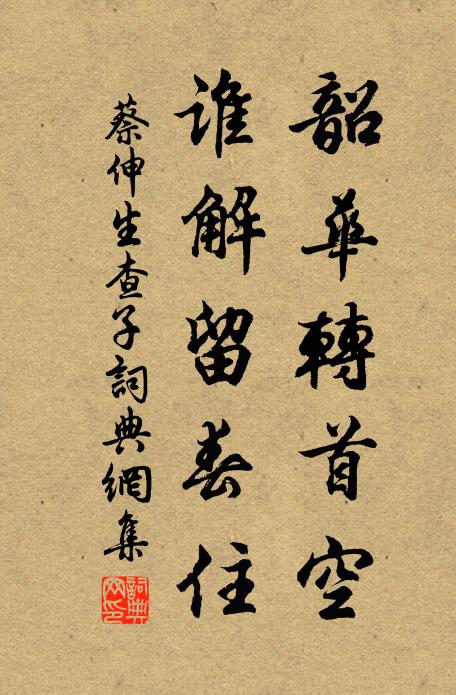 韶華轉首空
誰解留春住
蔡伸生查子詞典網集
詞典
网印